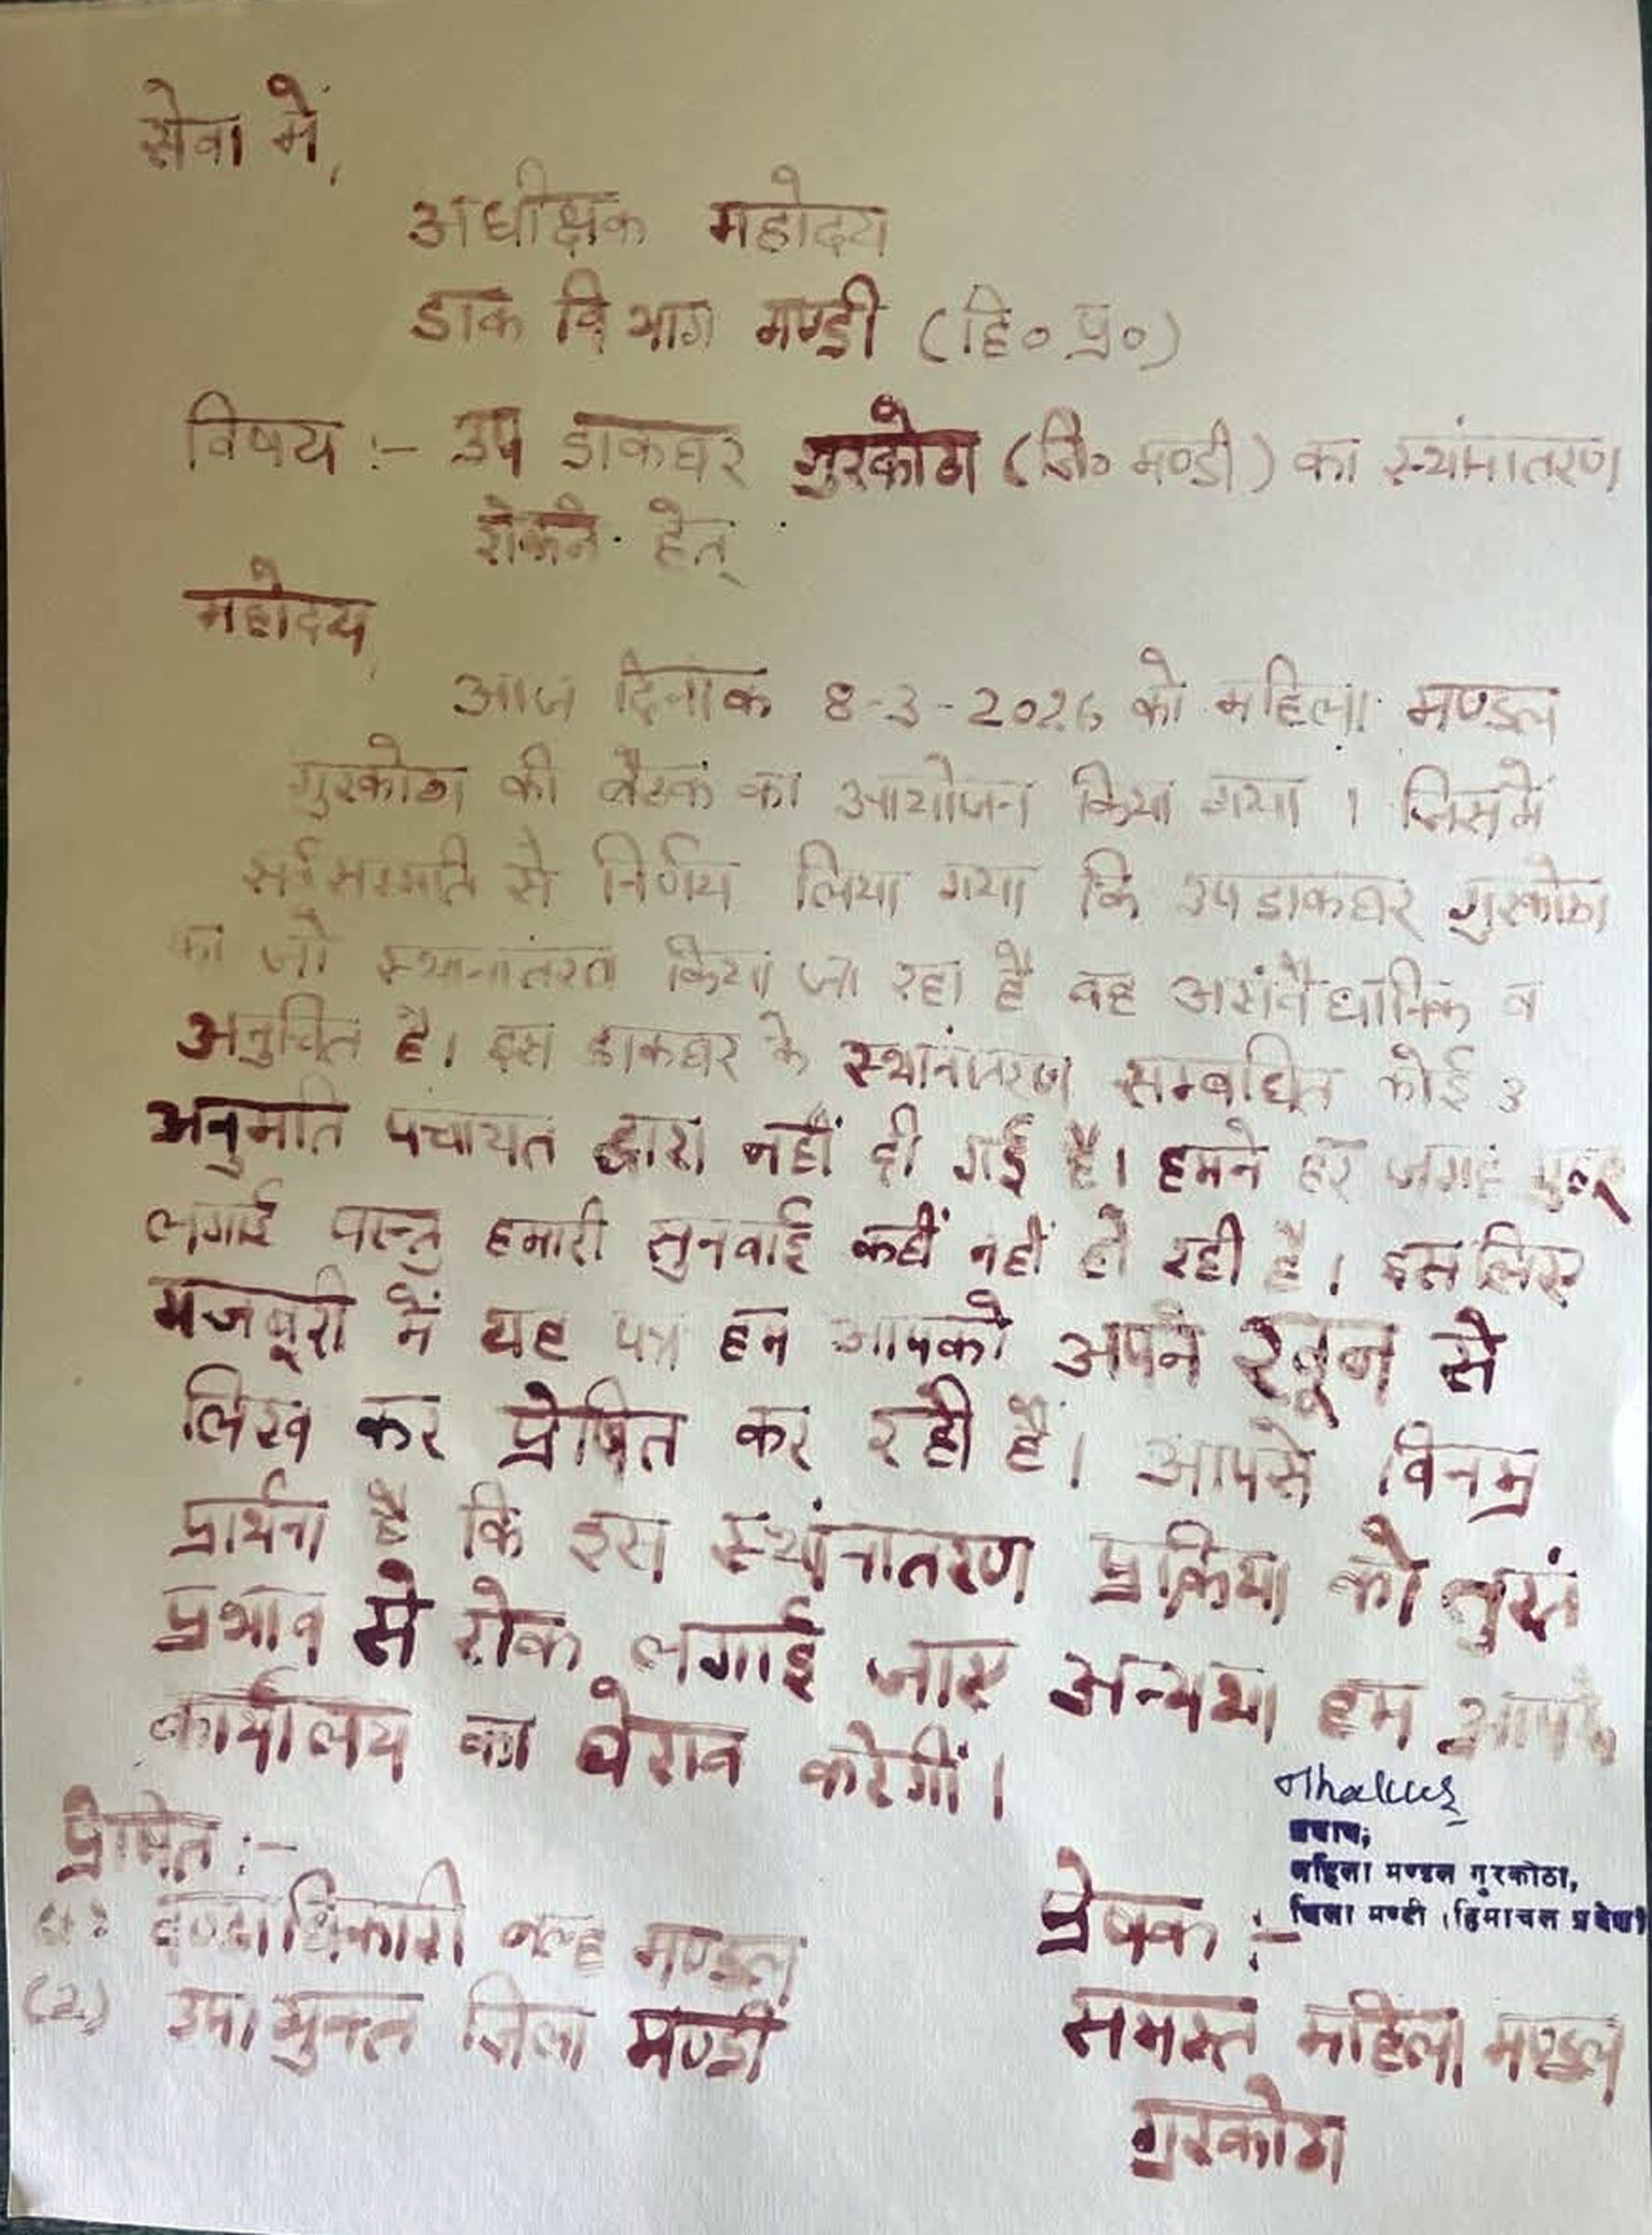 सेवा में,
अधीक्षक महोदय
डाक विभाग मण्डी (हि० प्र०)
विषय :- उप डाकघर गुरकोठा (जि० मण्डी) का स्थांमातरण
रोकने हेतू
महोदय,
आज दिनांक 8-3-2026 को महिला मण्डल
गुरकोठा की बैठक का आयोजन किया गया । जिसमें
सर्वसम्मति से निर्णय लिया गया कि उपडाकघर गुरकोठा
का जो स्थानातंरण किया जा रहा है वह असंवैधानिक व
अनुचित है। इस डाकघर के स्थानांतरण सम्बधित कोई
अनुमति पंचायत द्वारा नहीं दी गई है। हमने हर जगह गुहार
लगाई परन्तु हमारी सुनवाई कहीं नहीं हो रही है। इसलिए
मजबूरी में यह पत्र हम आपको अपने खून से
लिख कर प्रेषित कर रही हैं। आपसे विनम्र
प्रार्थना है कि इस स्थांनातरण प्रक्रिया को तुरतं
प्रभाव से रोक लगाई जाए अन्यथा हम आपके
कार्यालय का घेराव करेगीं।
Thakur
प्रधान,
महिला मण्डल गुरकोठा,
जिला मण्डी (हिमाचल प्रदेश)
प्रेषित :-
दण्डाधिकारी बल्ह मण्डल
(2) उपायुक्त जिला मण्डी
प्रेषक :-
समस्त महिला मण्डल
गुरकोठा